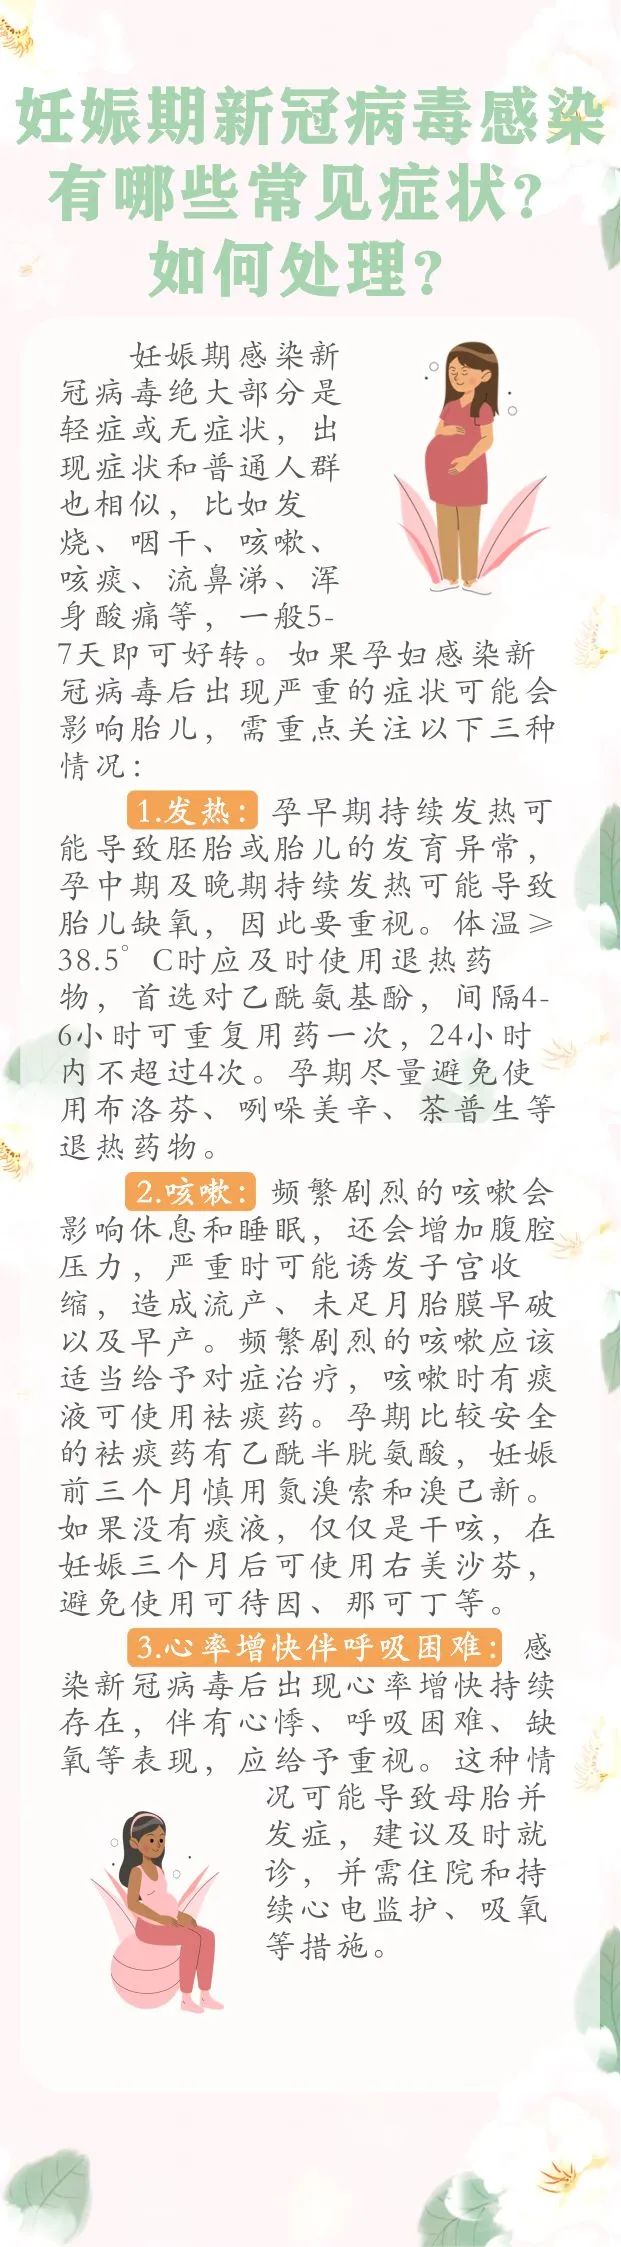 妊娠期新冠病毒感染
有哪些常见症状？
如何处理？
妊娠期感染新
冠病毒绝大部分是
轻症或无症状，出
现症状和普通人群
也相似，比如发
烧、咽干、咳嗽、
咳痰、流鼻涕、浑
身酸痛等，一般5-
7天即可好转。如果孕妇感染新
冠病毒后出现严重的症状可能会
影响胎儿，需重点关注以下三种
情况：
1.发热：孕早期持续发热可
能导致胚胎或胎儿的发育异常，
孕中期及晚期持续发热可能导致
胎儿缺氧，因此要重视。体温≥
38.5°C时应及时使用退热药
物，首选对乙酰氨基酚，间隔4-
6小时可重复用药一次，24小时
内不超过4次。孕期尽量避免使
用布洛芬、咧哚美辛、茶普生等
退热药物。
2.咳嗽：频繁剧烈的咳嗽会
影响休息和睡眠，还会增加腹腔
压力，严重时可能诱发子宫收
缩，造成流产、未足月胎膜早破
以及早产。频繁剧烈的咳嗽应该
适当给予对症治疗，咳嗽时有痰
液可使用祛痰药。孕期比较安全
的祛痰药有乙酰半胱氨酸，妊娠
前三个月慎用氮溴索和溴己新。
如果没有痰液，仅仅是干咳，在
妊娠三个月后可使用右美沙芬，
避免使用可待因、那可丁等。
3.心率增快伴呼吸困难：感
染新冠病毒后出现心率增快持续
存在，伴有心悸、呼吸困难、缺
氧等表现，应给予重视。这种情
况可能导致母胎并
发症，建议及时就
诊，并需住院和持
续心电监护、吸氧
等措施。